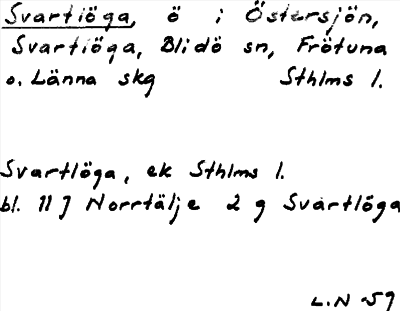 Svartlöga, ö i Östersjön,
Svartlöga, Blidö sn, Frötuna
o. Länna skg Sthlms l.
Svartlöga, ek Sthlms l.
bl. 11 J Norrtälje 2 g Svartlöga
L.N 59